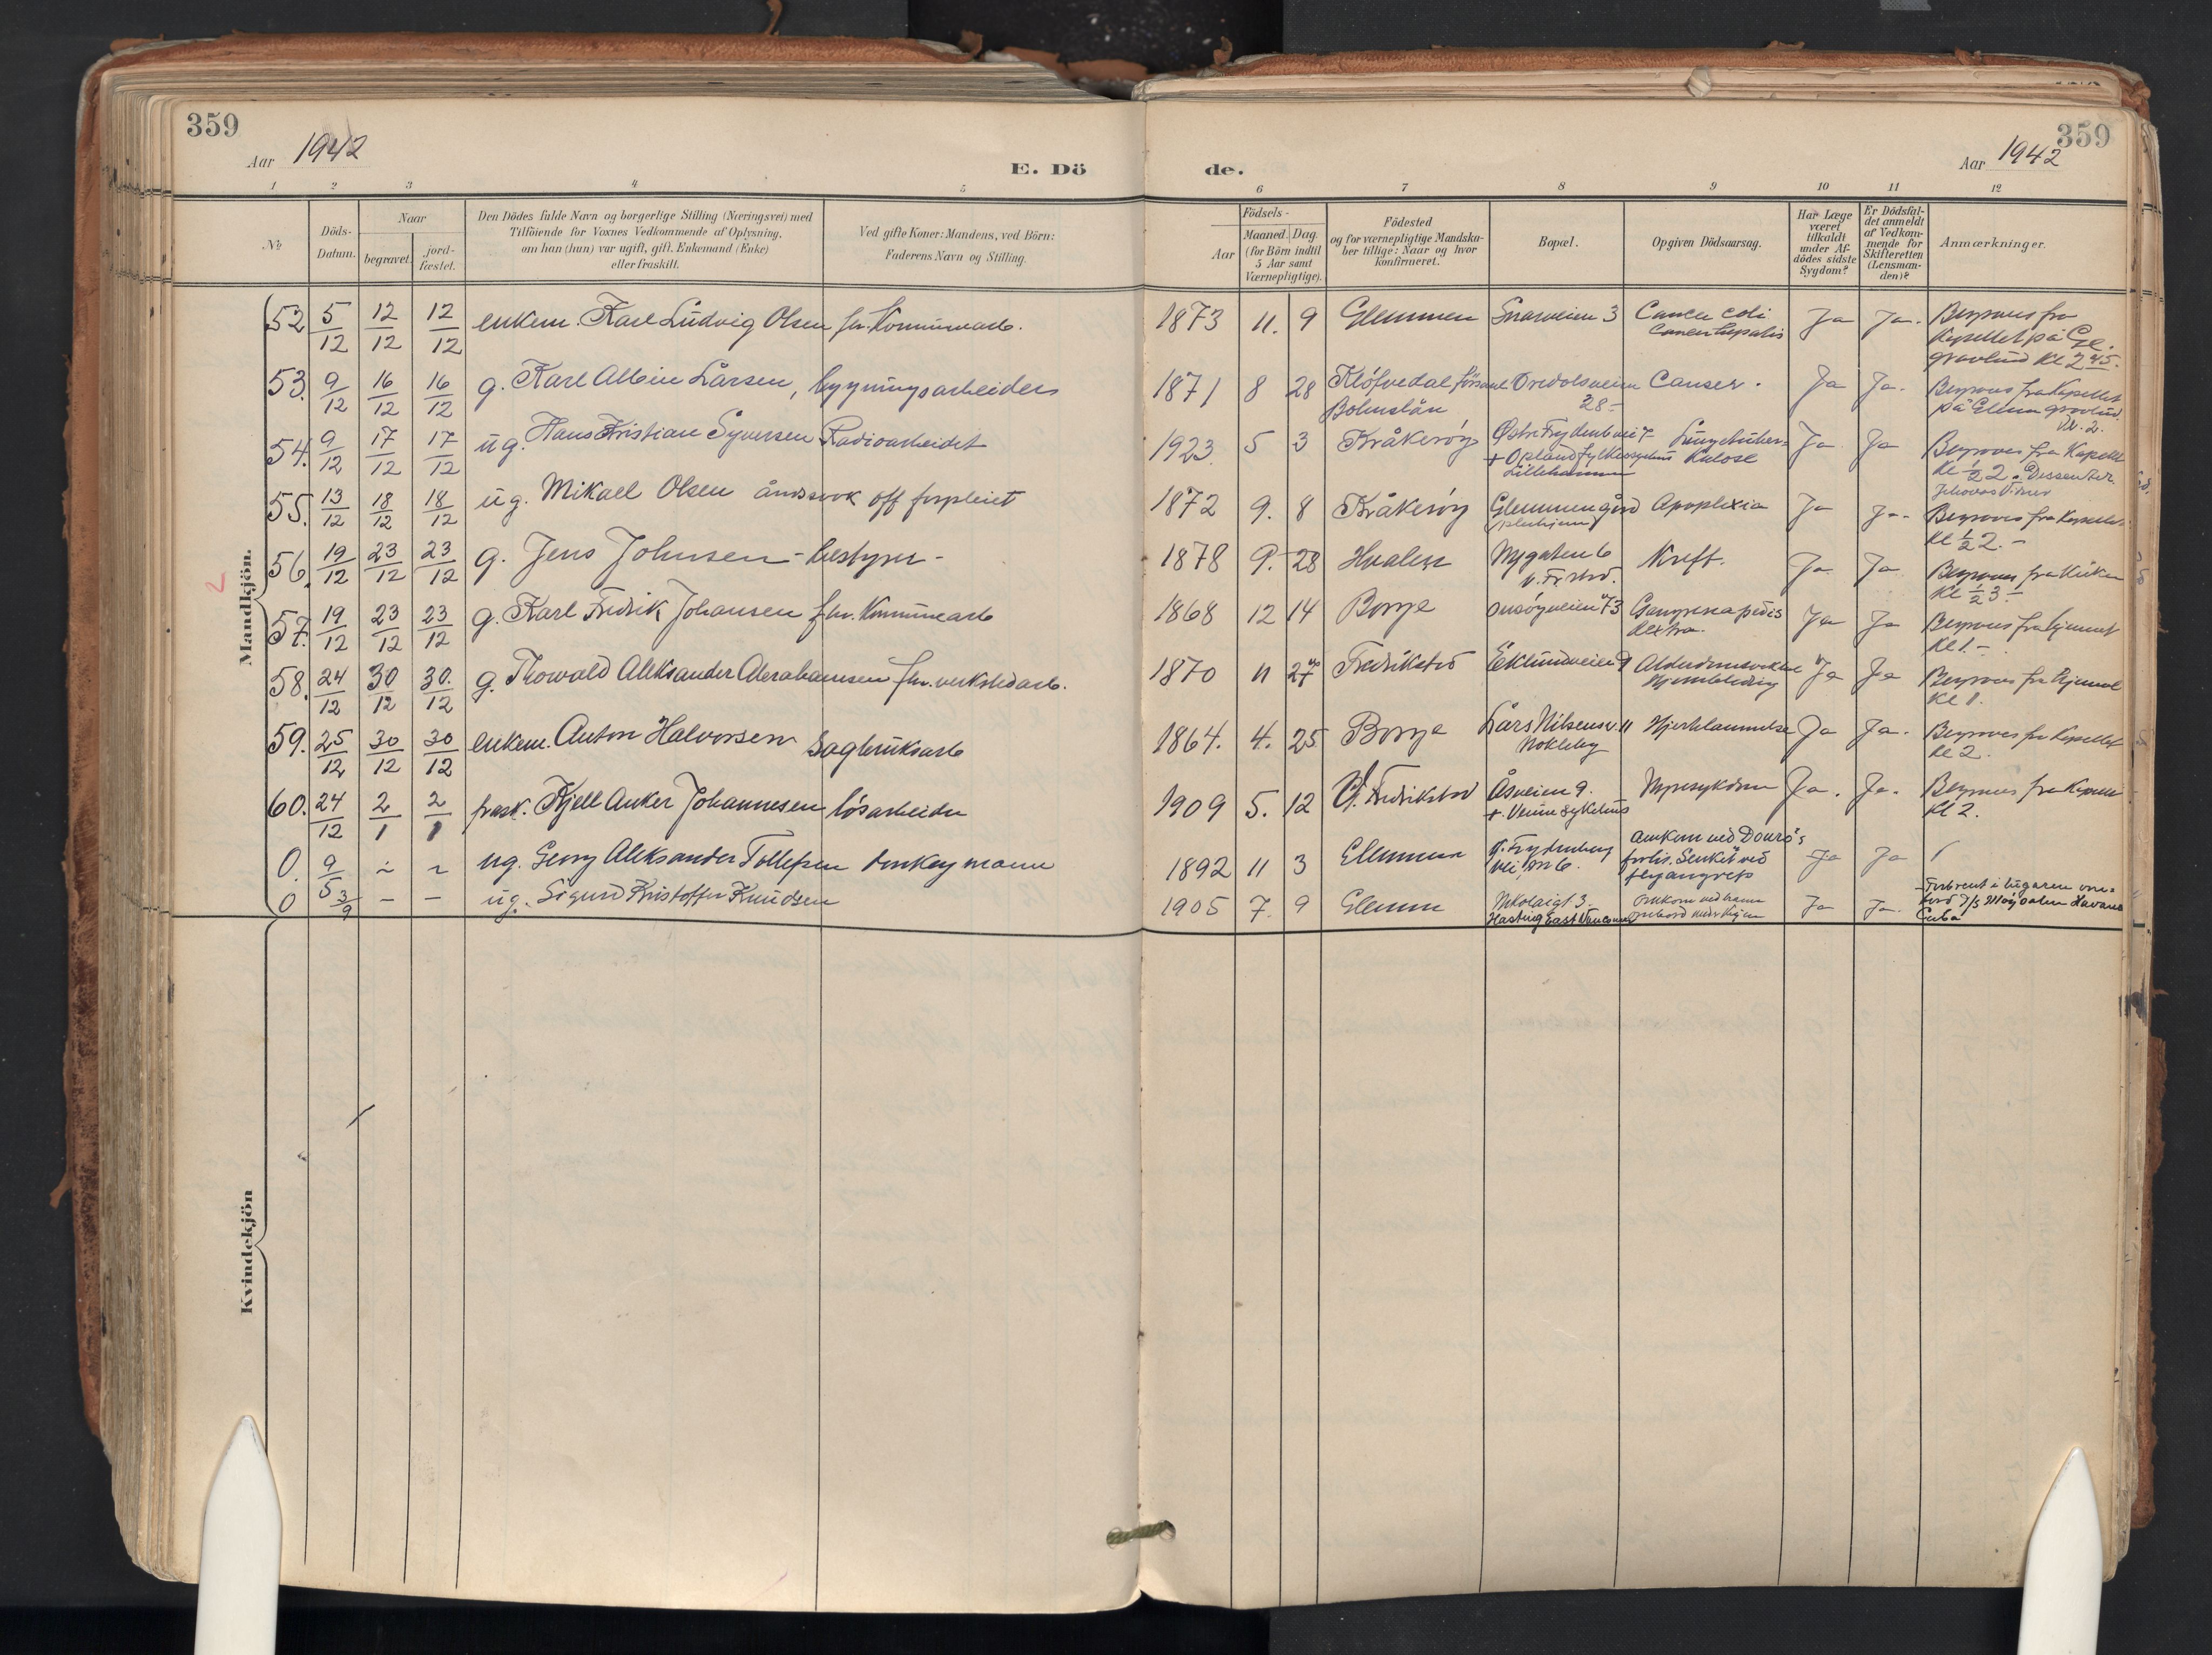 359
Aar 1942
E. Dö
de.
Aar 1942
359
1 2 3 4 5 6 7 8 9 10 11 12
№
Döds-
Datum.
Naar
begravet.
jord-
fæstet.
Den Dödes fulde Navn og borgerlige Stilling (Næringsvei) med
Tilföiende for Voxnes Vedkommende af Oplysning,
om han (hun) var ugift, gift, Enkemand (Enke)
eller fraskilt.
Ved gifte Koner: Mandens, ved Börn:
Faderens Navn og Stilling.
Födsels-
Aar
Maaned. Dag.
(for Börn indtil
5 Aar samt
Værnepligtige).
Födested
og for værnepligtige Mandska-
ber tillige: Naar og hvor
konfirmeret.
Bopæl.
Opgiven Dödsaarsag.
Har Læge
været
tilkaldt
under Af-
dödes sidste
Sygdom?
Er Dödsfal-
det anmeldt
af Vedkom-
mende for
Skifteretten
(Lensman-
den)?
Anmærkninger.
Mandkjön.
52 5/12 12/12 12/12 enkem. Karl Ludvig Olsen fhv. Kommunearb. 1873 11. 9 Glemmen Snarveien 3 Cancer coli Ja Ja. Begraves fra
Kapellet på Gl.
gravlund Kl 2 45.
53. 9/12 16/12 16/12 g. Karl Albin Larsen, bygningsarbeider 1871 8 28 Klöfvedal församl Oredalsveien Canser. Ja Ja. Begraves fra Kapellet
Bohuslän 28-
på Glem gravlund
Kl. 2.
54. 9/12 17/12 17/12 ug. Hans Kristian Syversen Radioarbeider 1923. 5 3 Kråkeröy Østre Frydenb vei 7 Lungetuber- Ja Ja Begraves fra Kapellet
+ Opland fylkessykehus kulose
Lillehammer
Kl 1/2 2. Dissenter.
Jehovas Vitner
55. 13/12 18/12 18/12 ug. Mikael Olsen åndssvak off forpleiet 1872 9. 8 Kråkeröy Glemmengård Apoplexia Ja Ja. Begraves fra Kapellet
pleiehjem
Kl 1/2 2. -
56. 19/12 23/12 23/12 g. Jens Johnsen - bestyrer - 1878 9. 28 Hvaler Nygaten 6 Kreft. Ja. Ja Begraves fra Kirken
Kl 1/2 3. -
57. 19/12 23/12 23/12 g. Karl Fredrik Johansen fhv. Kommunearb 1868 12 14 Borge Onsöyveien 73 Gangrena pedis Ja Ja Begraves fra hjemmet
dextra.
Kl 1. -
58. 24/12 30/12 30/12 g. Thorvald Aleksander Abrahamsen fhv. verkstedarb. 1870 11 27 Fredrikstad Eklundveien 9 Alderdomssvakhet Ja Ja Begraves fra hjemmet
Hjerneblödning
Kl 1.
59. 25/12 30/12 30/12 enkem. Anton Halvorsen Sagbruksarb 1864. 4. 25 Borge Lars Nilsensv. 11 Hjertelammelse Ja Ja. Begraves fra Kapellet
Nokleby
Kl 2.
60. 24/12 2/1 2/1 frask. Kjell Anker Johannesen lösarbeider 1909 5. 12 V. Fredrikstad Åsveien 9. Nyresykdom Ja. Ja. Begraves fra Kapellet
Kl 2.
0. 9/5 ug. Georg Aleksander Tollefsen donkeymann 1892 11 3 Glemmen Ø. Frydenberg omkom ved Douro's Ja Ja
vei 6. forlis. Senket ved
flyangrep
0 3/9 - - ug. Sigurd Kristoffer Knudsen 1905 7. 9 Glemm Nikolaigt 3. omkom ved brann Ja Ja. Forbrent i lugaren om-
Hasting East Vancouver ombord
Havana
Cuba
Kvindekjön